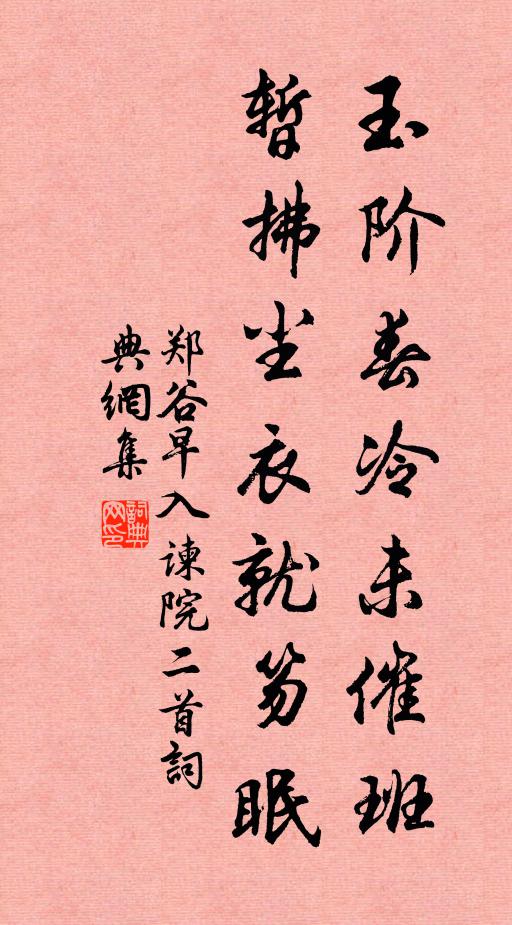 玉阶春冷未催班
暂拂尘衣就笏眠
郑谷早入谏院二首詞
典網集
詞典網印